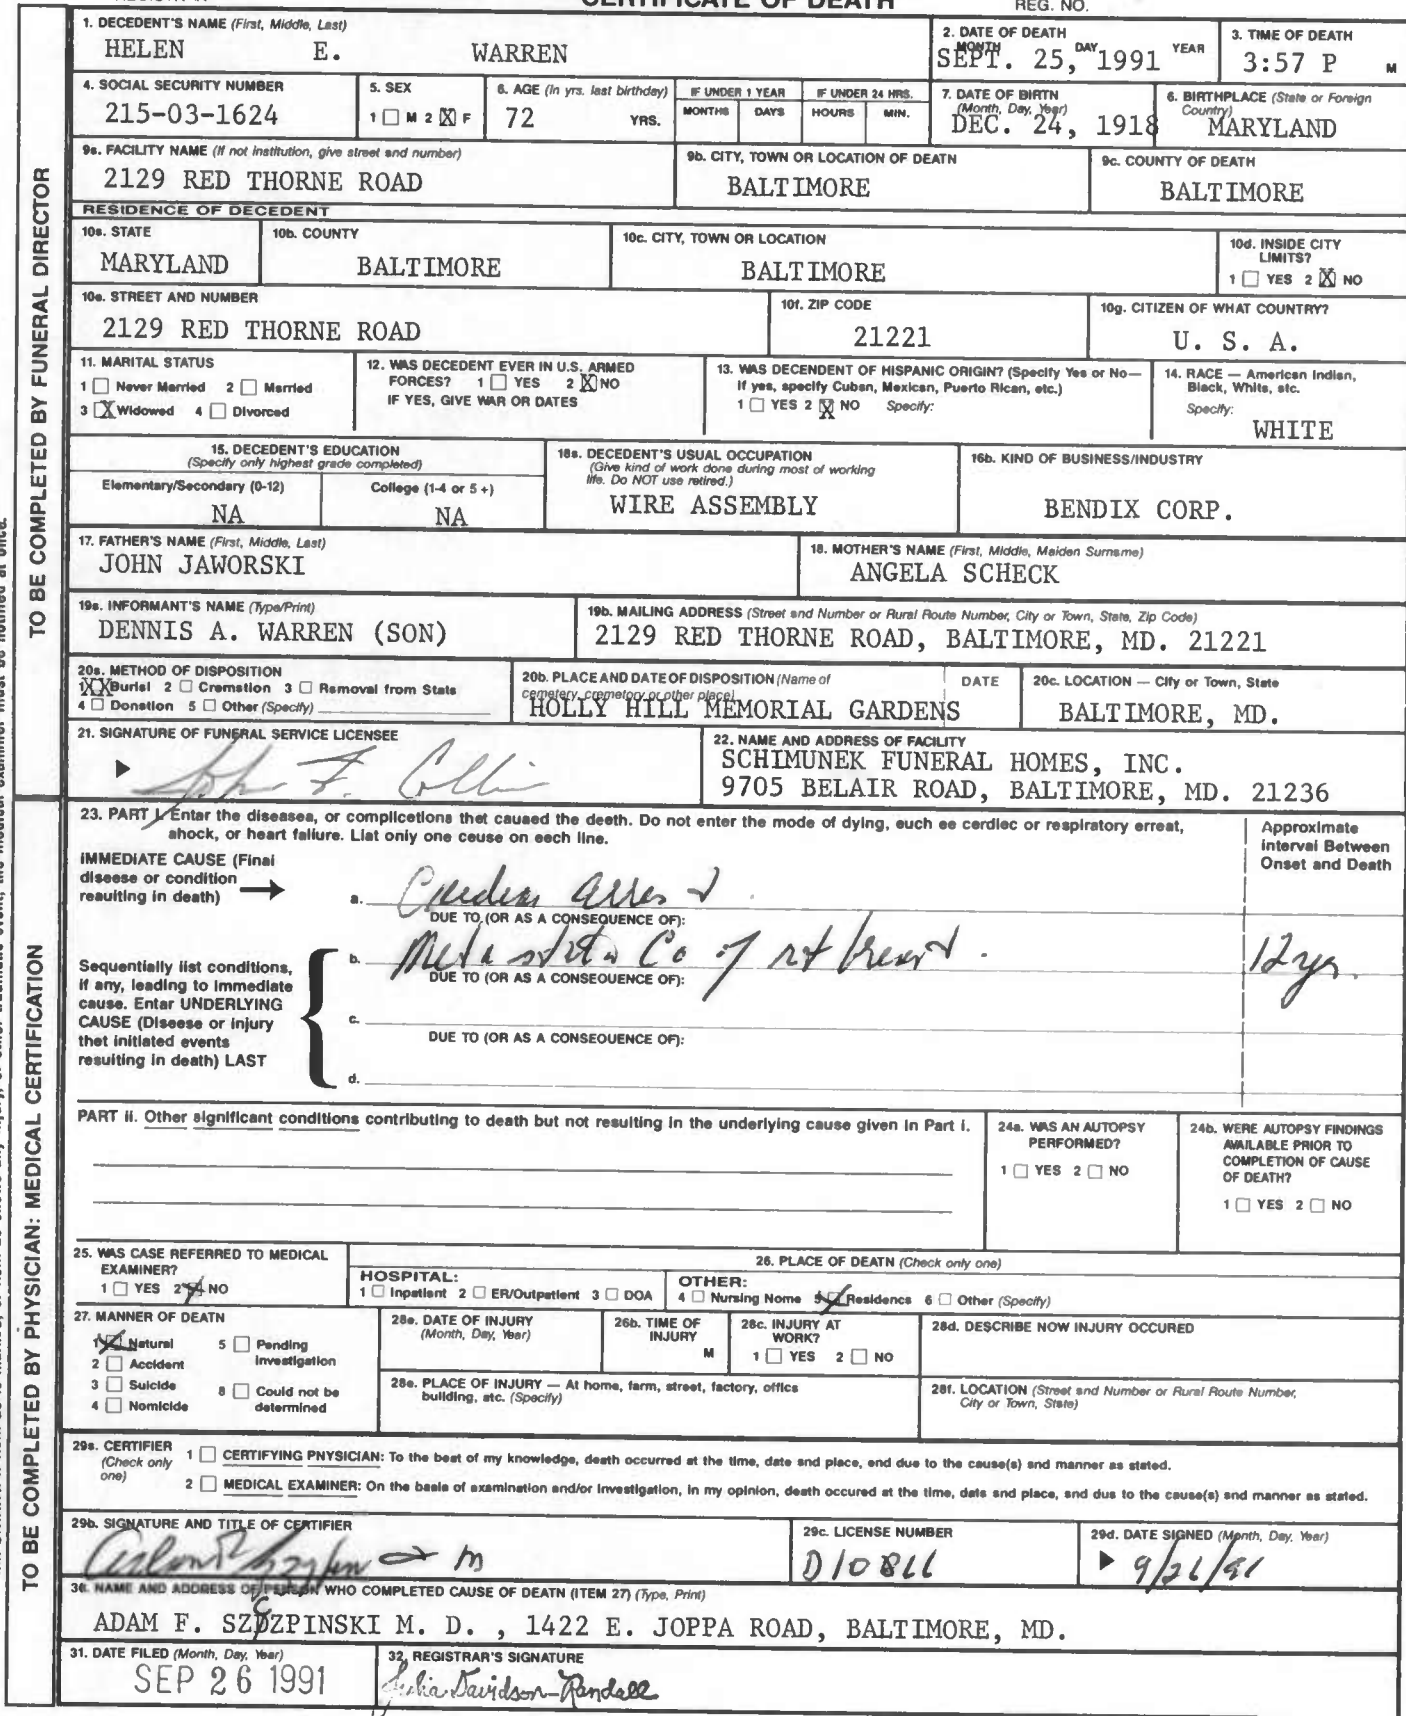 CERTIFICATE OF DEATH
REG. NO.
1. DECEDENT'S NAME (First, Middle, Last)
HELEN E. WARREN
2. DATE OF DEATH
MONTH DAY YEAR
SEPT. 25, 1991
3. TIME OF DEATH
3:57 P M
4. SOCIAL SECURITY NUMBER
215-03-1624
5. SEX
1 M 2 X F
6. AGE (In yrs. last birthday)
72 YRS.
IF UNDER 1 YEAR
MONTHS DAYS
IF UNDER 24 HRS.
HOURS MIN.
7. DATE OF BIRTH
(Month, Day, Year)
DEC. 24, 1918
6. BIRTHPLACE (State or Foreign
Country)
MARYLAND
9a. FACILITY NAME (If not institution, give street and number)
2129 RED THORNE ROAD
9b. CITY, TOWN OR LOCATION OF DEATH
BALTIMORE
9c. COUNTY OF DEATH
BALTIMORE
RESIDENCE OF DECEDENT
10a. STATE
MARYLAND
10b. COUNTY
BALTIMORE
10c. CITY, TOWN OR LOCATION
BALTIMORE
10d. INSIDE CITY
LIMITS?
1 YES 2 X NO
10e. STREET AND NUMBER
2129 RED THORNE ROAD
10f. ZIP CODE
21221
10g. CITIZEN OF WHAT COUNTRY?
U. S. A.
11. MARITAL STATUS
1 Never Married 2 Married
3 X Widowed 4 Divorced
12. WAS DECEDENT EVER IN U.S. ARMED
FORCES? 1 YES 2 X NO
IF YES, GIVE WAR OR DATES
13. WAS DECENDENT OF HISPANIC ORIGIN? (Specify Yes or No—
If yes, specify Cuban, Mexican, Puerto Rican, etc.)
1 YES 2 X NO Specify:
14. RACE — American Indian,
Black, White, etc.
Specify:
WHITE
15. DECEDENT'S EDUCATION
(Specify only highest grade completed)
Elementary/Secondary (0-12)
NA
College (1-4 or 5 +)
NA
16a. DECEDENT'S USUAL OCCUPATION
(Give kind of work done during most of working
life. Do NOT use retired.)
WIRE ASSEMBLY
16b. KIND OF BUSINESS/INDUSTRY
BENDIX CORP.
17. FATHER'S NAME (First, Middle, Last)
JOHN JAWORSKI
18. MOTHER'S NAME (First, Middle, Maiden Surname)
ANGELA SCHECK
19a. INFORMANT'S NAME (Type/Print)
DENNIS A. WARREN (SON)
19b. MAILING ADDRESS (Street and Number or Rural Route Number, City or Town, State, Zip Code)
2129 RED THORNE ROAD, BALTIMORE, MD. 21221
20a. METHOD OF DISPOSITION
1 XX Burial 2 Cremation 3 Removal from State
4 Donation 5 Other (Specify)
20b. PLACE AND DATE OF DISPOSITION (Name of
cemetery, crematory or other place)
HOLLY HILL MEMORIAL GARDENS
DATE
20c. LOCATION — City or Town, State
BALTIMORE, MD.
21. SIGNATURE OF FUNERAL SERVICE LICENSEE
John F. Collin
22. NAME AND ADDRESS OF FACILITY
SCHIMUNEK FUNERAL HOMES, INC.
9705 BELAIR ROAD, BALTIMORE, MD. 21236
TO BE COMPLETED BY FUNERAL DIRECTOR
23. PART I. Enter the diseases, or complications that caused the death. Do not enter the mode of dying, such as cardiac or respiratory arrest,
shock, or heart failure. List only one cause on each line.
Approximate
Interval Between
Onset and Death
IMMEDIATE CAUSE (Final
disease or condition
resulting in death)
a. Cardiac arrest
DUE TO (OR AS A CONSEQUENCE OF):
b. Metastatic Ca of rt breast. 12 yr.
DUE TO (OR AS A CONSEQUENCE OF):
Sequentially list conditions,
if any, leading to immediate
cause. Enter UNDERLYING
CAUSE (Disease or injury
that initiated events
resulting in death) LAST
c.
DUE TO (OR AS A CONSEQUENCE OF):
d.
PART II. Other significant conditions contributing to death but not resulting in the underlying cause given in Part I.
24a. WAS AN AUTOPSY
PERFORMED?
1 YES 2 NO
24b. WERE AUTOPSY FINDINGS
AVAILABLE PRIOR TO
COMPLETION OF CAUSE
OF DEATH?
1 YES 2 NO
25. WAS CASE REFERRED TO MEDICAL
EXAMINER?
1 YES 2 NO
26. PLACE OF DEATH (Check only one)
HOSPITAL:
1 Inpatient 2 ER/Outpatient 3 DOA
OTHER:
4 Nursing Home 5 Residence 6 Other (Specify)
27. MANNER OF DEATH
1 Natural 5 Pending
Investigation
2 Accident
3 Suicide 8 Could not be
determined
4 Homicide
28a. DATE OF INJURY
(Month, Day, Year)
28b. TIME OF
INJURY
M
28c. INJURY AT
WORK?
1 YES 2 NO
28d. DESCRIBE HOW INJURY OCCURED
28e. PLACE OF INJURY — At home, farm, street, factory, office
building, etc. (Specify)
28f. LOCATION (Street and Number or Rural Route Number,
City or Town, State)
29a. CERTIFIER
(Check only
one)
1 CERTIFYING PHYSICIAN: To the best of my knowledge, death occurred at the time, date and place, and due to the cause(s) and manner as stated.
2 MEDICAL EXAMINER: On the basis of examination and/or investigation, in my opinion, death occured at the time, date and place, and due to the cause(s) and manner as stated.
29b. SIGNATURE AND TITLE OF CERTIFIER
29c. LICENSE NUMBER
D10866
29d. DATE SIGNED (Month, Day, Year)
9/26/91
30. NAME AND ADDRESS OF PERSON WHO COMPLETED CAUSE OF DEATH (ITEM 27) (Type, Print)
ADAM F. SZCZPINSKI M. D. , 1422 E. JOPPA ROAD, BALTIMORE, MD.
31. DATE FILED (Month, Day, Year)
SEP 26 1991
32. REGISTRAR'S SIGNATURE
Julia Davidson-Randall
TO BE COMPLETED BY PHYSICIAN: MEDICAL CERTIFICATION